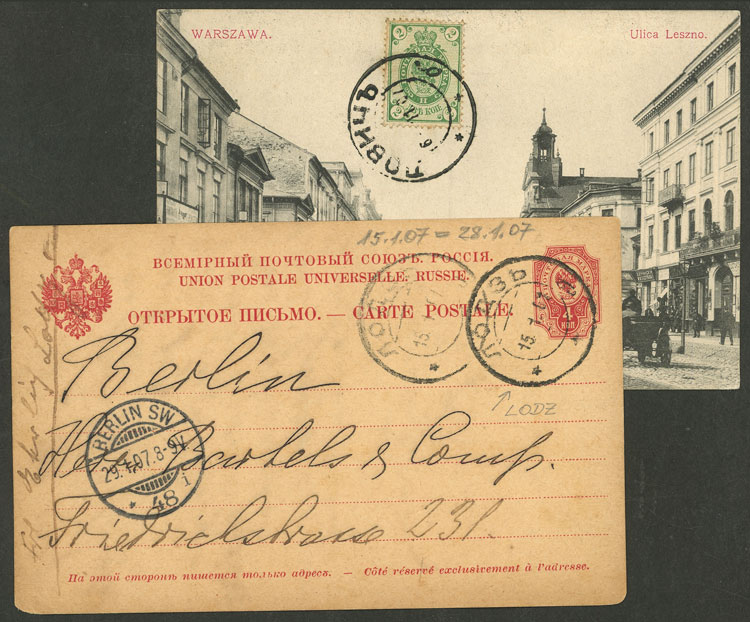 WARSZAWA.
Ulica Leszno.
2 2
2 2
15.1.07 = 28.1.07
ВСЕМІРНЫЙ ПОЧТОВЫЙ СОЮЗЪ. РОССІЯ.
UNION POSTALE UNIVERSELLE. RUSSIE.
ОТКРЫТОЕ ПИСЬМО. — CARTE POSTALE.
ЛОДЗЬ
15.1.07
4
КОП
LODZ
Berlin
BERLIN SW
29.1.07.8-9V.
* 48 i
Herr Bartels & Comp.
Friedrichstrasse 231.
На этой сторонѣ пишется только адресъ. — Côté réservé exclusivement à l'adresse.